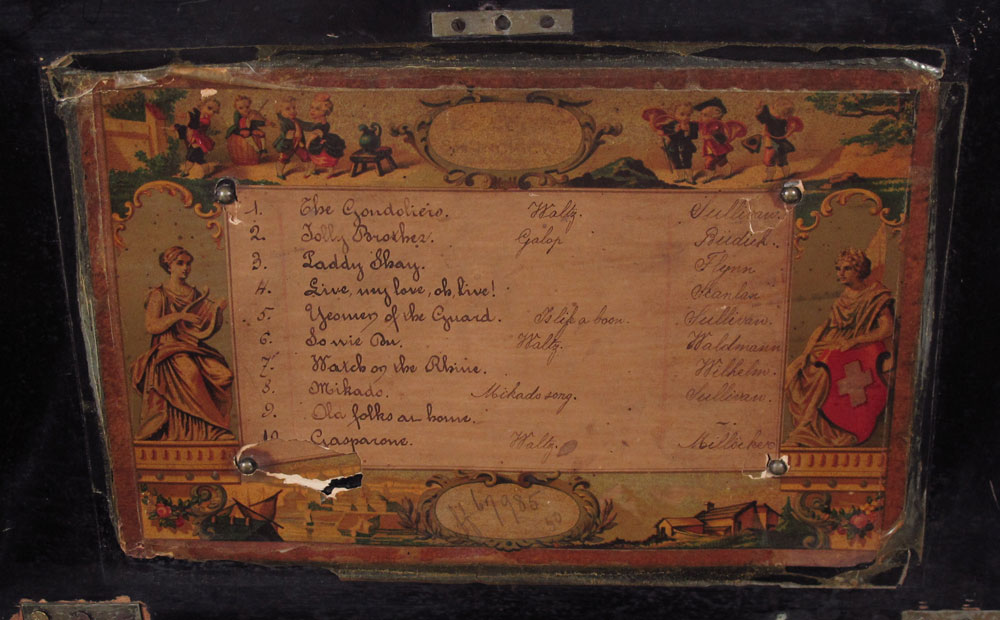 1. The Gondoliers. Waltz. Sullivan.
2. Jolly Brother. Galop Budick.
3. Paddy Shay. Flynn
4. Live, my love, oh, live! Scanlan
5. Yeomen of the Guard. Is life a boon. Sullivan.
6. So wie Du. Waltz. Waldmann
7. Watch on the Rhine. Wilhelm.
8. Mikado. Mikado song. Sullivan.
9. Old folks at home.
10. Gasparone. Waltz. Millöcker
67985